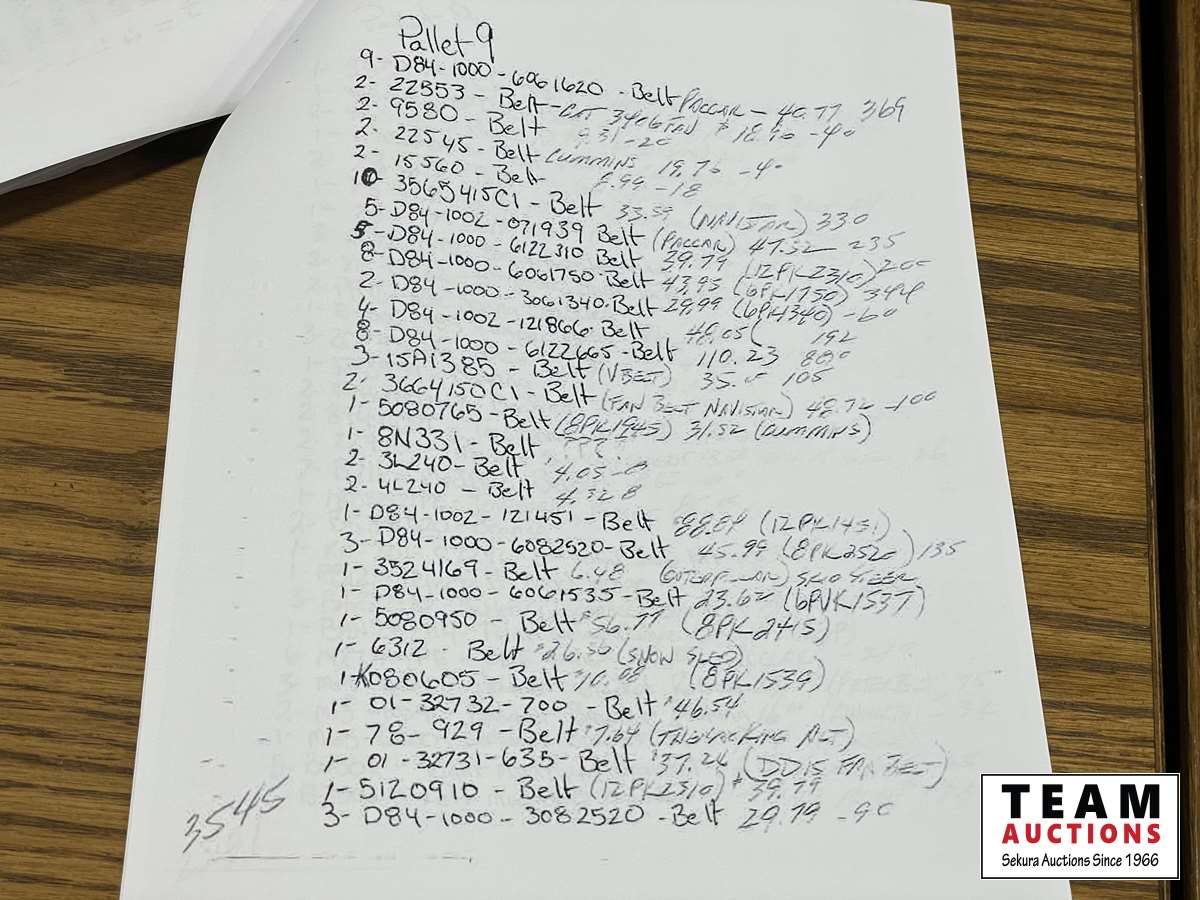 Pallet 9
9- D84-1000-6061620 - Belt PACCAR - 40.77 369
2- 22553 - Belt - CAT 3406 FAN $18.90 -40
2- 9580 - Belt 9.31 -20
2- 22545 - Belt Cummins 19.76 -40
2- 15560 - Belt 8.99 -18
10- 3565415C1 - Belt 33.59 (NAVISTAR) 330
5- D84-1002-071939 Belt (PACCAR) 47.32 235
5- D84-1000-6122310 Belt 39.79 (12PK2310) 200
8- D84-1000-6061750 Belt 43.95 (6PK1750) 344
2- D84-1000-3061340 Belt 29.99 (6PK1340) -60
4- D84-1002-121866 Belt 48.05 ( 192
8- D84-1000-6122665 - Belt 110.23 880
3- 15A1385 - Belt (V BELT) 35. 105
2- 3664150C1 - Belt (FAN BELT NAVISTAR) 48.72 -100
1- 5080765 - Belt (8PK1945) 31.52 (Cummins)
1- 8N331 - Belt ???
2- 3L240 - Belt 4.05 -8
2- 4L240 - Belt 4.32 8
1- D84-1002-121451 - Belt 88.84 (12PK1451)
3- D84-1000-6082520 - Belt 45.99 (8PK2520) 135
1- 3524169 - Belt 6.48 SKID STEER
1- D84-1000-6061535 - Belt 23.62 (6PVK1537)
1- 5080950 - Belt $56.77 (8PK2415)
1- 6312 - Belt $26.56 (SNOW SLED)
1- K080605 - Belt (8PK1539)
1- 01-32732-700 - Belt $46.54
1- 78-929 - Belt $7.64 (THERMO KING ALT)
1- 01-32731-635 - Belt $37.26 (DD15 FAN BELT)
1- 5120910 - Belt (12PK2310) $39.79
3- D84-1000-3082520 - Belt 29.79 -90
3545
TEAM
AUCTIONS
Sekura Auctions Since 1966